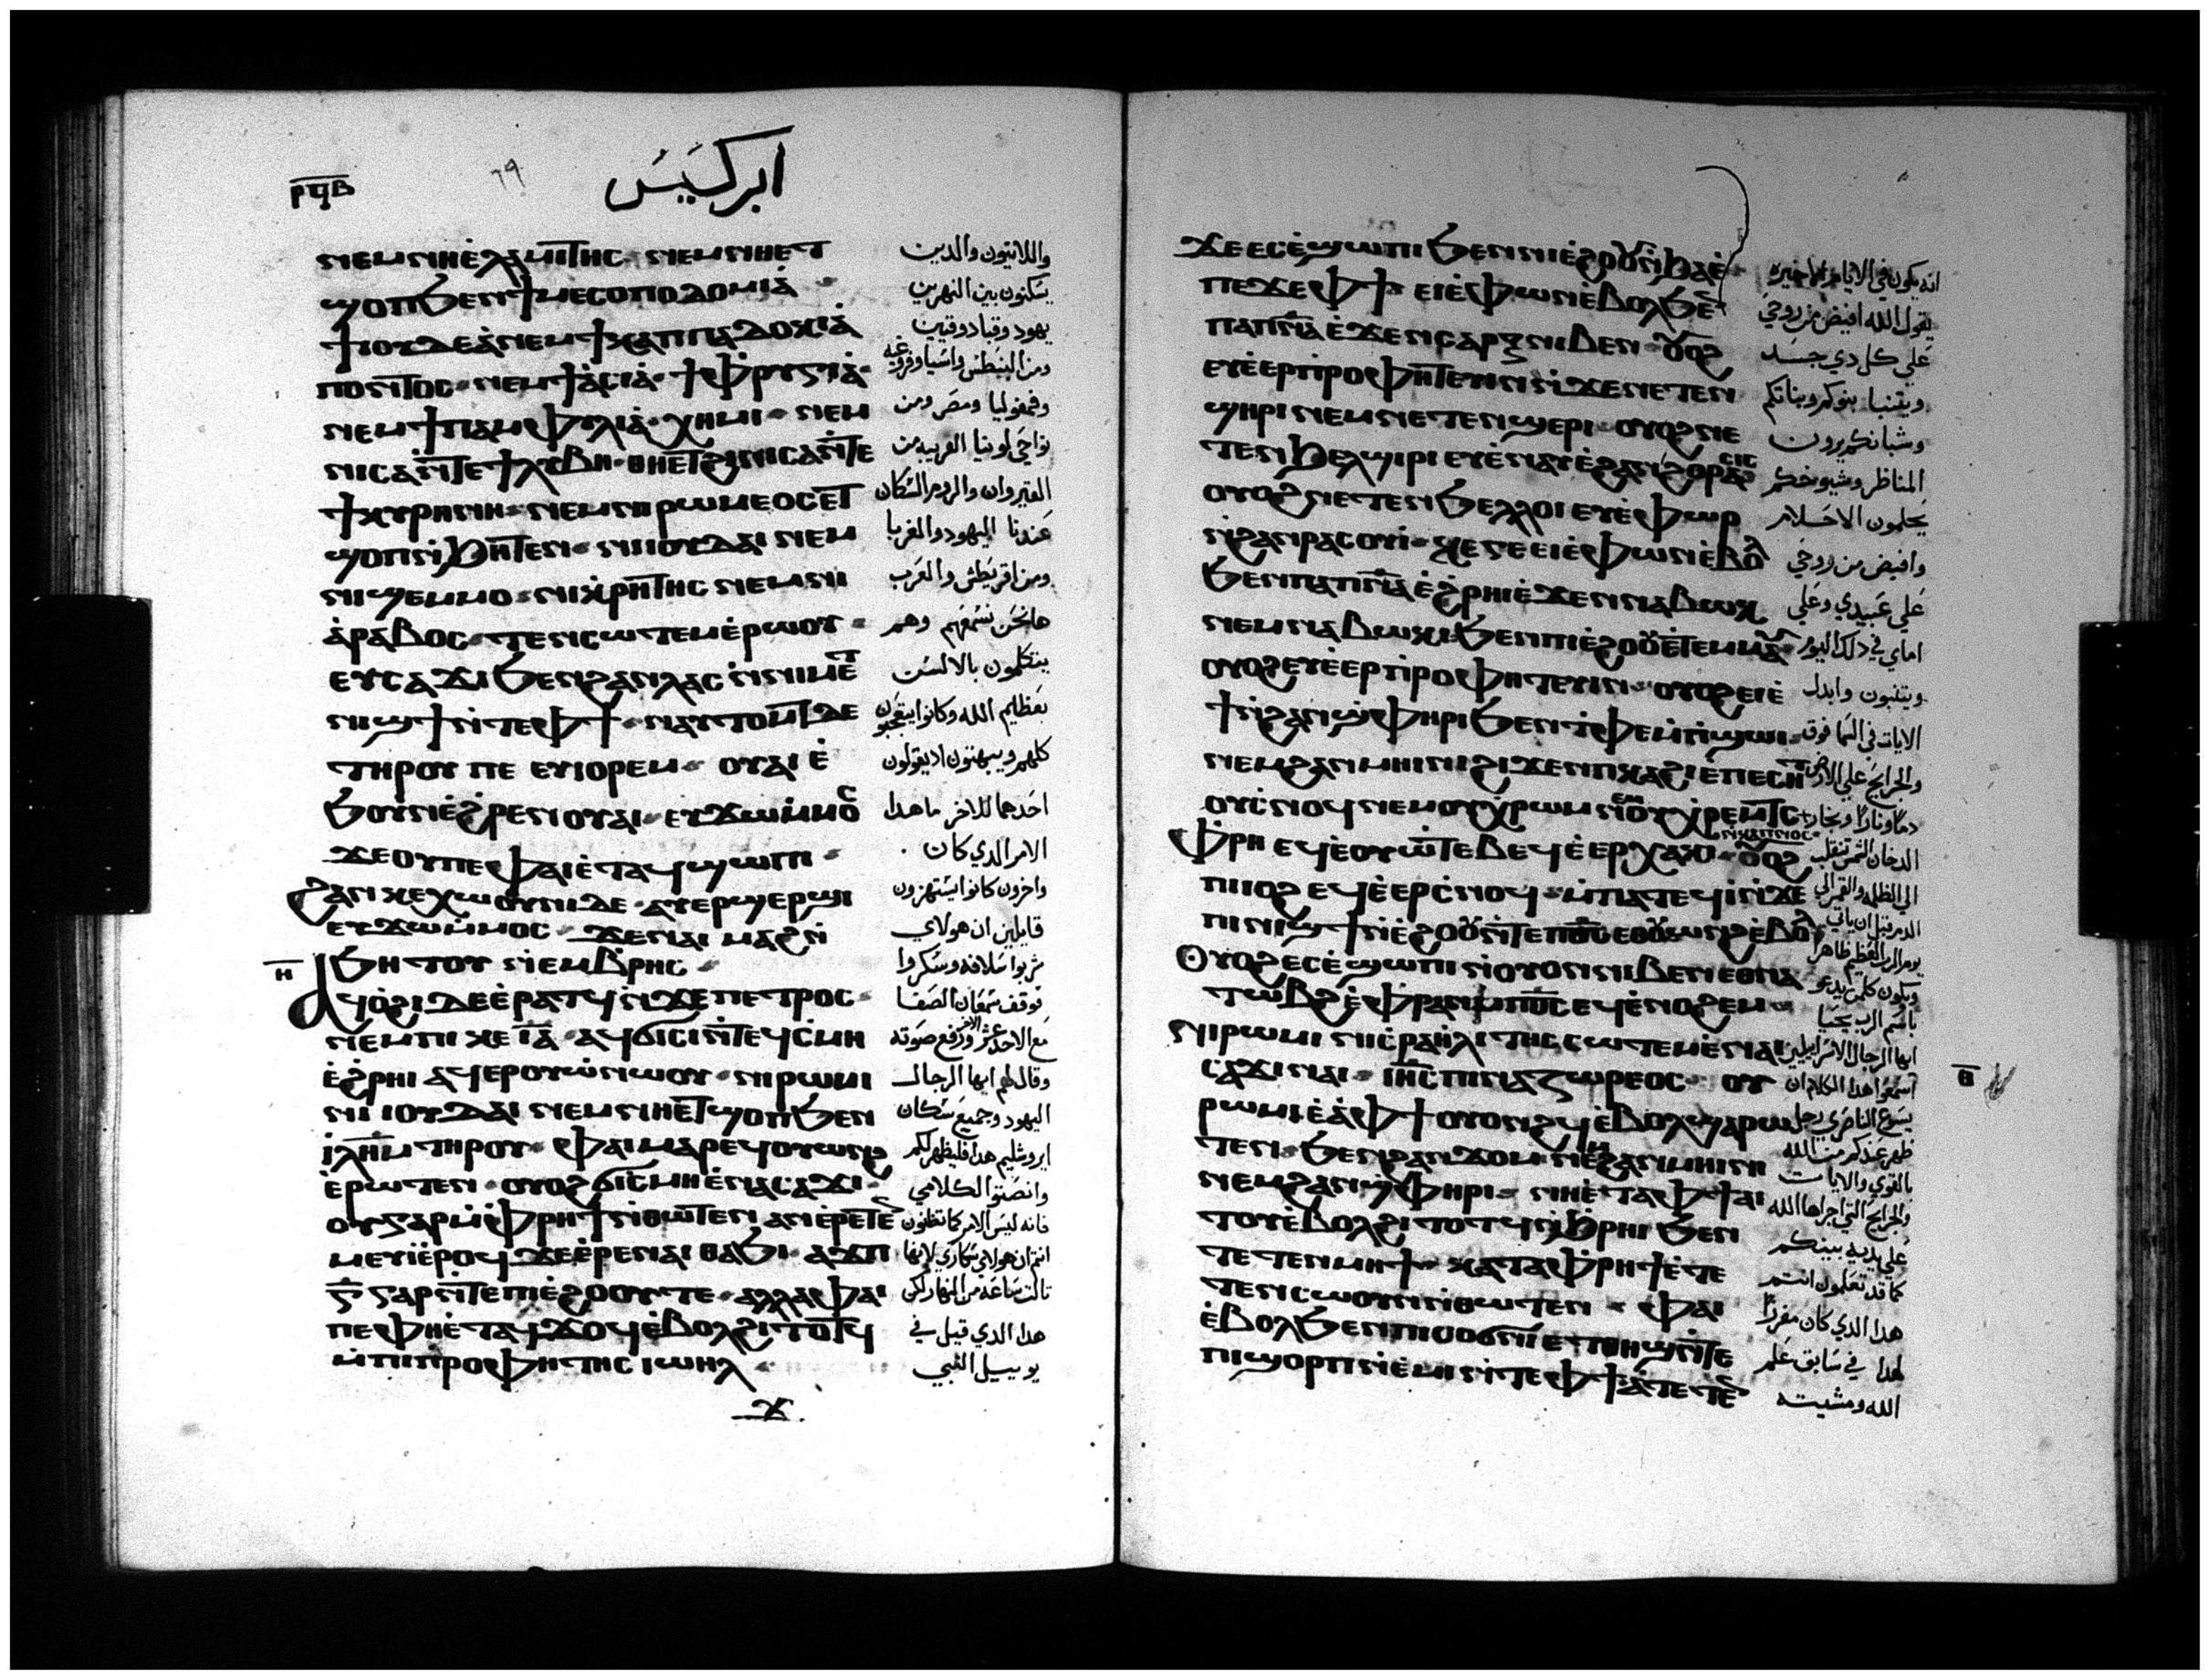 ⲣϥⲃ
٦٩
ابركسيس
ⲛⲉⲙ ⲛⲓⲉ̀ⲗⲁⲙⲓⲧⲏⲥ ⲛⲉⲙ ⲛⲏⲉⲧ
ϣⲟⲡ ϧⲉⲛ ϯⲙⲉⲥⲟⲡⲟⲇⲟⲙⲓⲁ̀
ϯⲓⲟⲩⲇⲉⲁ̀ ⲛⲉⲙ ϯⲕⲁⲡⲡⲁⲇⲟⲕⲓⲁ̀
ⲡⲟⲛⲧⲟⲥ ⲛⲉⲙ ϯⲁ̀ⲥⲓⲁ̀ ϯⲫⲣⲩⲅⲓⲁ̀
ⲛⲉⲙ ϯⲡⲁⲙⲫⲩⲗⲓⲁ̀ ⲭⲏⲙⲓ ⲛⲉⲙ
ⲛⲓⲥⲁ ⲛ̀ⲧⲉ ϯⲗⲩⲃⲏ ⲑⲏⲉⲧϩⲓ ⲛⲓⲥⲁ ⲛ̀ⲧⲉ
ϯⲕⲩⲣⲏⲛⲏ ⲛⲉⲙ ⲛⲓⲣⲱⲙⲉⲟⲥ ⲉⲧ
ϣⲟⲡ ⲛ̀ϧⲏⲧⲉⲛ ⲛⲓⲓⲟⲩⲇⲁⲓ ⲛⲉⲙ
ⲛⲓϣⲉⲙⲙⲟ ⲛⲓⲕⲣⲏⲧⲏⲥ ⲛⲉⲙ ⲛⲓ
ⲁ̀ⲣⲁⲃⲟⲥ ⲧⲉⲛⲥⲱⲧⲉⲙ ⲉ̀ⲣⲱⲟⲩ
ⲉⲩⲥⲁϫⲓ ϧⲉⲛ ϩⲁⲛⲗⲁⲥ ⲛ̀ⲛⲓⲙⲉⲧ
ⲛⲓϣϯ ⲛ̀ⲧⲉ ⲫϯ ⲛⲁⲩⲧⲟⲙⲧ ⲇⲉ
ⲧⲏⲣⲟⲩ ⲡⲉ ⲉⲩⲓⲟⲣⲉⲙ ⲟⲩⲁⲓ ⲉ̀
ϧⲟⲩⲛ ⲉ̀ϩⲣⲉⲛ ⲟⲩⲁⲓ ⲉⲩϫⲱ ⲙ̀ⲙⲟⲥ
ϫⲉ ⲟⲩ ⲡⲉ ⲫⲁⲓ ⲉ̀ⲧⲁϥϣⲱⲡⲓ
ϩⲁⲛⲕⲉⲭⲱⲟⲩⲛⲓ ⲇⲉ ⲁⲩⲉⲣϣⲉⲣϣⲓ
ⲉⲩϫⲱ ⲙ̀ⲙⲟⲥ ϫⲉ ⲛⲁⲓ ⲙⲁϩ ⲛ̀
ϧⲏⲧⲟⲩ ⲛ̀ⲉⲙⲃⲣⲏⲥ
ⲏ
ⲁϥⲟ̀ϩⲓ ⲇⲉ ⲉ̀ⲣⲁⲧϥ ⲛ̀ϫⲉ ⲡⲉⲧⲣⲟⲥ
ⲛⲉⲙ ⲡⲓⲕⲉⲓⲁ̅ ⲁϥϭⲓⲥⲓ ⲛ̀ⲧⲉϥⲥⲙⲏ
ⲉ̀ϩⲣⲏⲓ ⲁϥⲉⲣⲟⲩⲱ̀ ⲛⲱⲟⲩ ⲛⲓⲣⲱⲙⲓ
ⲛⲓⲓⲟⲩⲇⲁⲓ ⲛⲉⲙ ⲛⲏⲉⲧϣⲟⲡ ϧⲉⲛ
ⲓ̀ⲗⲏⲙ ⲧⲏⲣⲟⲩ ⲫⲁⲓ ⲙⲁⲣⲉϥⲟⲩⲱⲛϩ
ⲉ̀ⲣⲱⲧⲉⲛ ⲟⲩⲟϩ ϭⲓⲥⲙⲏ ⲉ̀ⲛⲁⲥⲁϫⲓ
ⲟⲩ ⲅⲁⲣ ⲙ̀ⲫⲣⲏϯ ⲛ̀ⲑⲱⲧⲉⲛ ⲁⲛ ⲉ̀ⲣⲉⲧⲉⲛ
ⲙⲉⲩⲓ ⲉ̀ⲣⲟϥ ϫⲉ ⲉ̀ⲣⲉ ⲛⲁⲓ ⲑⲁϧⲓ ⲁϫⲡ
ⲅ̅ ⲅⲁⲣ ⲛ̀ⲧⲉ ⲡⲓⲉ̀ϩⲟⲟⲩ ⲧⲉ ⲁⲗⲗⲁ ⲫⲁⲓ
ⲡⲉ ⲫⲏⲉ̀ⲧⲁⲩϫⲟϥ ⲉ̀ⲃⲟⲗϩⲓⲧⲟⲧϥ
ⲙ̀ⲡⲓⲡⲣⲟⲫⲏⲧⲏⲥ ⲓⲱⲏⲗ
ϫ
واللاتيون والدين
يسكنون بين النهرين
يهود وقبادوقيين
ومن البنطس واسيا وفروغيه
وفمفوليا ومصر ومن
نواحي لوبيا القريبه من
القيروان والروم السكان
عندنا اليهود والغربا
ومن اقريطش والعرب
هانحن نسمعهم وهم
يتكلمون بالالسنت
بعظايم الله وكانوا يتعجبون
كلهم ويبهتون اد يقولون
احدهما للاخر ما هدا
الامر الدي كان
واخرون كانوا يستهزون
قايلين ان هولاي
شربوا سلافه وسكروا
فوقف سمعان الصفا
مع الاحد عشر الاخر ورفع صوته
وقال لهم ايها الرجال
اليهود وجميع سكان
ايروشليم هدا فليظهر لكم
وانصتوا لكلامي
فانه ليس الامر كما تظنون
انتم ان هولاي سكاري لانها
تالت ساعه من النهار لكن
هدا الدي قيل في
يوييل النبي
ϫⲉ ⲉⲥⲉ̀ϣⲱⲡⲓ ϧⲉⲛ ⲛⲓⲉ̀ϩⲟⲟⲩ ⲛ̀ϧⲁⲉ̀
ⲡⲉϫⲉ ⲫϯ ⲉⲓⲉ̀ⲫⲱⲛ ⲉ̀ⲃⲟⲗϧⲉⲛ
ⲡⲁⲡⲛⲁ ⲉ̀ϫⲉⲛ ⲥⲁⲣⲝ ⲛⲓⲃⲉⲛ ⲟⲩⲟϩ
ⲉⲩⲉ̀ⲉⲣⲡⲣⲟⲫⲏⲧⲉⲩⲓⲛ ⲛ̀ϫⲉ ⲛⲉⲧⲉⲛ
ϣⲏⲣⲓ ⲛⲉⲙ ⲛⲉⲧⲉⲛϣⲉⲣⲓ ⲟⲩⲟϩ ⲛⲉ
ⲧⲉⲛϧⲉⲗϣⲓⲣⲓ ⲉⲩⲉ̀ⲛⲁⲩ ⲉ̀ϩⲁⲛϩⲟⲣⲁⲥⲓⲥ
ⲟⲩⲟϩ ⲛⲉⲧⲉⲛϧⲉⲗⲗⲟⲓ ⲉⲩⲉ̀ⲫⲱⲣ
ⲛ̀ϩⲁⲛⲣⲁⲥⲟⲩⲓ ⲕⲉ ⲅⲉ ⲉⲓⲉ̀ⲫⲱⲛ ⲉ̀ⲃⲟⲗ
ϧⲉⲛ ⲡⲁⲡⲛⲁ ⲉ̀ϩⲣⲏⲓ ⲉ̀ϫⲉⲛ ⲛⲁⲃⲱⲕ
ⲛⲉⲙ ⲛⲁⲃⲱⲕⲓ ϧⲉⲛ ⲡⲓⲉ̀ϩⲟⲟⲩ ⲉ̀ⲧⲉⲙⲙⲁⲩ
ⲟⲩⲟϩ ⲉⲩⲉ̀ⲉⲣⲡⲣⲟⲫⲏⲧⲉⲩⲓⲛ ⲟⲩⲟϩ ⲉⲓⲉ̀
ϯ ⲛ̀ϩⲁⲛϣⲫⲏⲣⲓ ϧⲉⲛ ⲧ̀ⲫⲉ ⲙ̀ⲡϣⲱⲓ
ⲛⲉⲙ ϩⲁⲛⲙⲏⲓⲛⲓ ϩⲓϫⲉⲛ ⲡⲕⲁϩⲓ ⲉ̀ⲡⲉⲥⲏⲧ
ⲟⲩⲥ̀ⲛⲟϥ ⲛⲉⲙ ⲟⲩⲭⲣⲱⲙ ⲛⲉⲙ ⲟⲩⲭⲣⲉⲙⲧⲥ
ⲛ̀ⲕⲁⲡⲛⲟⲥ
ⲫⲣⲏ ⲉϥⲉ̀ⲟⲩⲱⲧⲉⲃ ⲉϥⲉ̀ⲉⲣⲭⲁⲕⲓ ⲟⲩⲟϩ
ⲡⲓⲓⲟϩ ⲉϥⲉ̀ⲉⲣⲥ̀ⲛⲟϥ ⲙ̀ⲡⲁⲧⲉϥⲓ̀ ⲛ̀ϫⲉ
ⲡⲓⲛⲓϣϯ ⲛ̀ⲉ̀ϩⲟⲟⲩ ⲛ̀ⲧⲉ ⲡϭⲥ ⲉⲑⲟⲩⲱⲛϩ ⲉ̀ⲃⲟⲗ
ⲟⲩⲟϩ ⲉⲥⲉ̀ϣⲱⲡⲓ ⲟⲩⲟⲛ ⲛⲓⲃⲉⲛ ⲉⲑⲛⲁ
ⲧⲱⲃϩ ⲉ̀ⲫⲣⲁⲛ ⲙ̀ⲡϭⲥ ⲉϥⲉ̀ⲛⲟϩⲉⲙ
ⲛⲓⲣⲱⲙⲓ ⲛⲓⲓⲥⲣⲁⲏⲗⲓⲧⲏⲥ ⲥⲱⲧⲉⲙ ⲉ̀ⲛⲁⲓ
ⲥⲁϫⲓ ⲛⲁⲓ ⲓⲏⲥ ⲡⲓⲛⲁⲍⲱⲣⲉⲟⲥ ⲟⲩ
ⲑ
ⲣⲱⲙⲓ ⲉ̀ⲁ̀ ⲫϯ ⲟⲩⲟⲛϩϥ ⲉ̀ⲃⲟⲗ ϣⲁⲣⲱ
ⲧⲉⲛ ϧⲉⲛ ϩⲁⲛϫⲟⲙ ⲛⲉⲙ ϩⲁⲛⲙⲏⲓⲛⲓ
ⲛⲉⲙ ϩⲁⲛϣⲫⲏⲣⲓ ⲛⲏⲉ̀ⲧⲁ ⲫϯ ⲁⲓ
ⲧⲟⲩ ⲉ̀ⲃⲟⲗϩⲓⲧⲟⲧϥ ⲛ̀ϧⲣⲏⲓ ϧⲉⲛ
ⲧⲉⲧⲉⲛⲙⲏϯ ⲕⲁⲧⲁ ⲫⲣⲏϯ ⲉ̀ⲧⲉ
ⲧⲉⲛⲥⲱⲟⲩⲛ ⲛ̀ⲑⲱⲧⲉⲛ ⲫⲁⲓ
ⲉ̀ⲃⲟⲗϧⲉⲛ ⲡⲓⲥⲟϭⲛⲓ ⲉⲧⲑⲏϣ ⲛ̀ⲧⲉ
ⲡⲓϣⲟⲣⲡ ⲛ̀ⲉ̀ⲙⲓ ⲛ̀ⲧⲉ ⲫϯ ⲁ̀ⲧⲉⲧⲉⲛ
انه يكون في الايام الاخيره
يقول الله افيض من روحي
علي كل دي جسد
ويتنبا بنوكم وبناتكم
وشبانكم يرون
المناظر وشيوخكم
يحلمون الاحلام
وافيض من روحي
علي عبيدي وعلي
اماي في دلك اليوم
ويتنبون وابدل
الايات في السما فوق
والجرايح علي الارض
دما ونارا وبخار
الدخان الشمس تنقلب
الي الظلمه والقمر الي
الدم قبل ان ياتي
يوم الرب العظيم ظاهر
ويكون كل من يدعو
باسم الرب يحيا
ايها الرجال الاسرايليين
اسمعوا هدا الكلام ان
يسوع الناصري رجل
ظهر عندكم من الله
بالقوي والايات
والجرايح التي اجراها الله
علي يديه بينكم
كما قد تعلمون انتم
هدا الدي كان مفرزا
لهدا في سابق علم
الله ومشيته